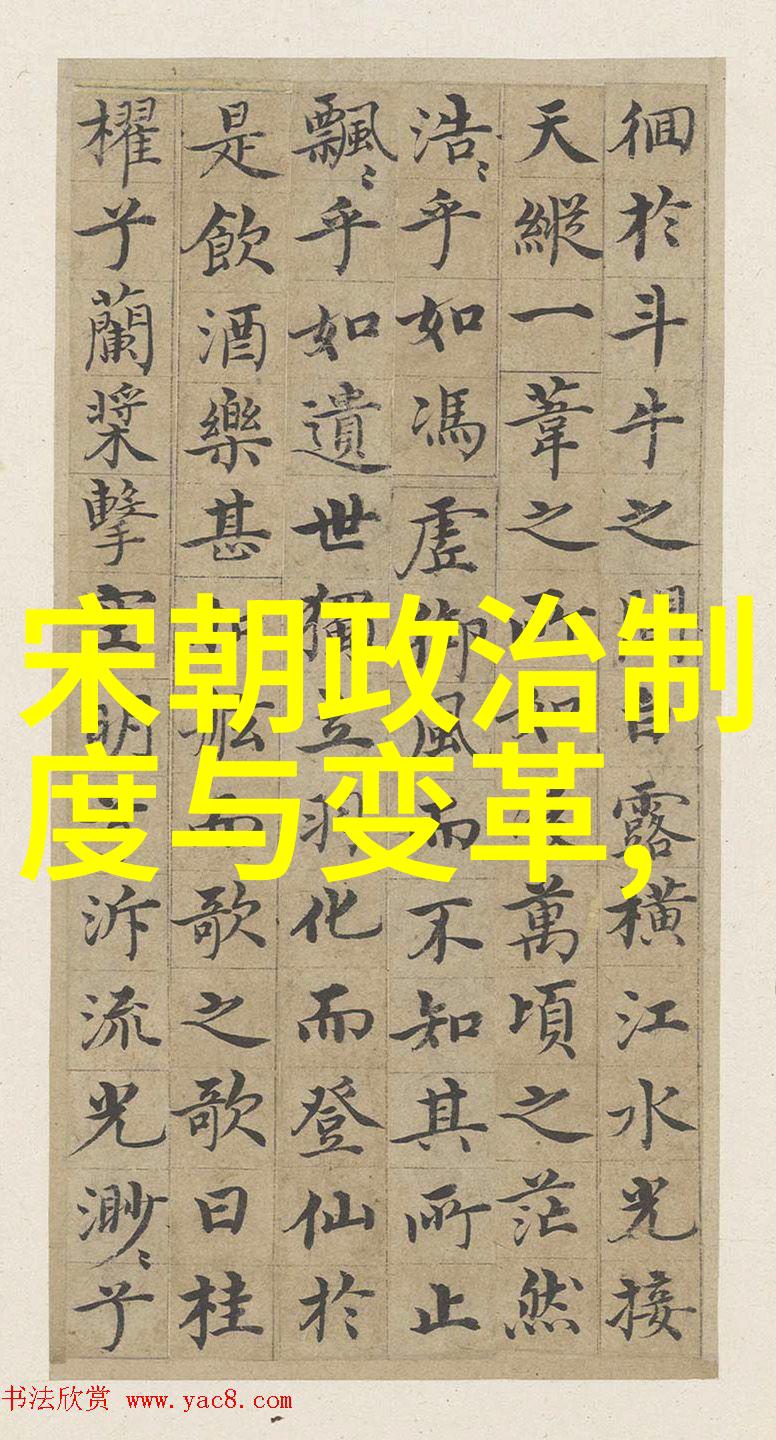 宋朝政治制
度与变革,
徊於斗牛之間白露橫江水光接
天縱一葦之所如萬頃之茫然
浩〻乎如馮虛御風而不知其所止
飄〻乎如遺世獨立羽化而登仙於
是飲酒樂甚扣舷而歌之歌曰桂
櫂兮蘭槳擊空明兮泝流光渺〻兮
书法欣赏 www.yac8.com